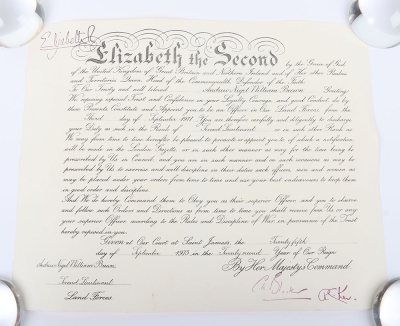 Elizabeth R
Elizabeth the Second
by the Grace of God
of the United Kingdom of Great Britain and Northern Ireland and of Her other Realms
and Territories Queen, Head of the Commonwealth, Defender of the Faith.
To Our Trusty and well beloved Andrew Nigel William Brown Greeting:
We reposing especial Trust and Confidence in your Loyalty, Courage, and good Conduct, do by
these Presents Constitute and Appoint you to be an Officer in Our Land Forces from the
Third day of September 1971 You are therefore carefully and diligently to discharge
your Duty as such in the Rank of Second Lieutenant or in such other Rank as
We may from time to time hereafter be pleased to promote or appoint you to of which a notification
will be made in the London Gazette, or in such other manner as may for the time being be
prescribed by Us in Council, and you are in such manner and on such occasions as may be
prescribed by Us to exercise and well discipline in their duties such officers, men and women as
may be placed under your orders from time to time and use your best endeavours to keep them
in good order and discipline.
And We do hereby Command them to Obey you as their superior Officer, and you to observe
and follow such Orders and Directions as from time to time you shall receive from Us, or any
your superior Officer, according to the Rules and Discipline of War, in pursuance of the Trust
hereby reposed in you.
Given at Our Court, at Saint James's, the Twenty fifth
day of September 1973 in the Twenty second Year of Our Reign
By Her Majesty's Command
Andrew Nigel William Brown
Second Lieutenant
Land Forces